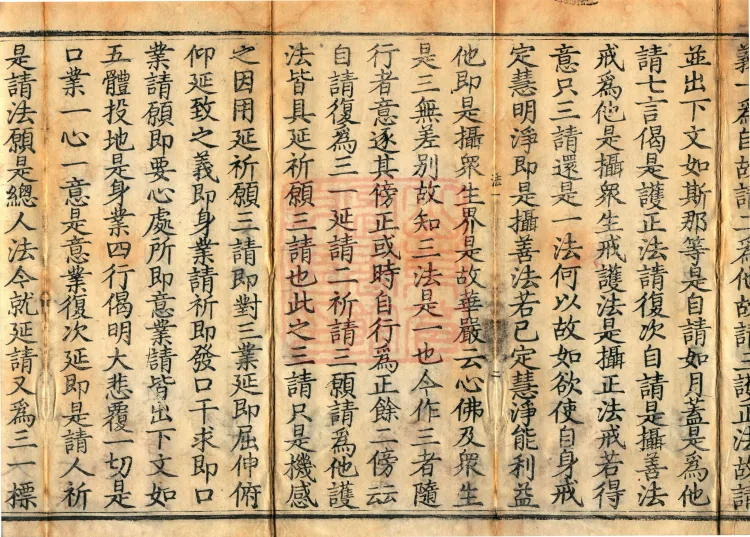 義一爲自故請二爲他故請三護正法故請
並出下文如斯那等是自請如月蓋是爲他
請七言偈是護正法請復次自請是攝善法
戒爲他是攝衆生戒護法是攝正法戒若得
意只三請還是一法何以故如欲使自身戒
定慧明淨即是攝善法若已定慧淨能利益
法一
二
他即是攝衆生界是故華嚴云心佛及衆生
是三無差別故知三法是一也今作三者隨
行者意逐其傍正或時自行爲正餘二傍云云
自請復爲三一延請二祈請三願請爲他護
法皆具延祈願三請也此之三請只是機感
之因用延祈願三請即對三業延即屈伸俯
仰延致之義即身業請祈即發口干求即口
業請願即要心處所即意業請皆出下文如
五體投地是身業四行偈明大悲覆一切是
口業一心一意是意業復次延即是請人祈
是請法願是總人法今就延請又爲三一標